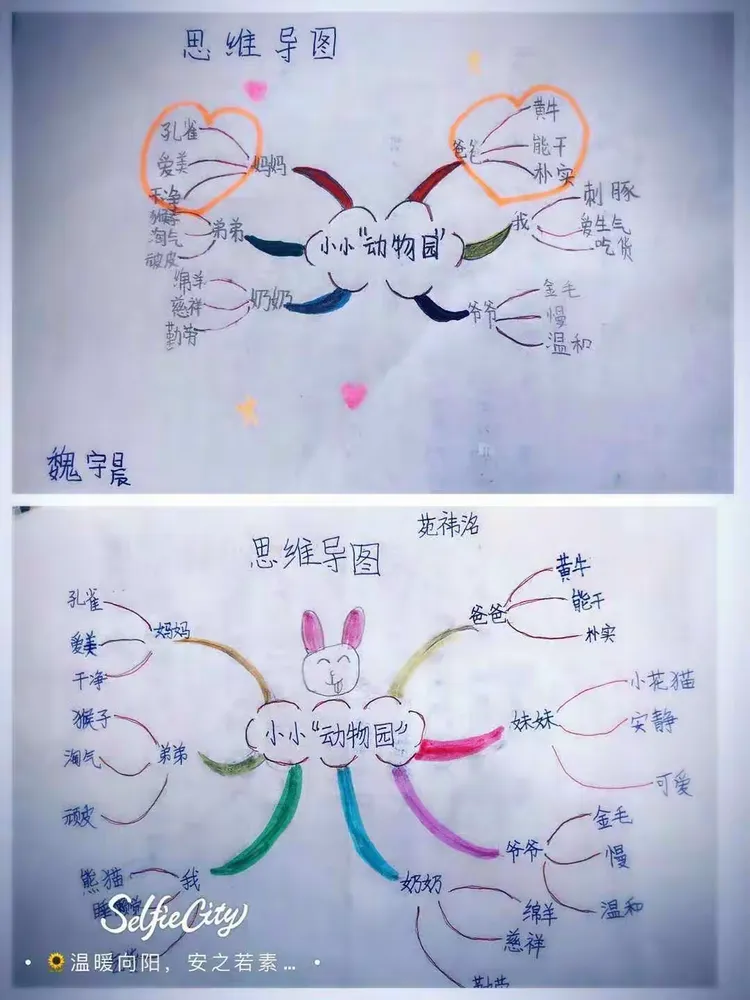 思维导图
孔雀
爱美
干净
妈妈
黄牛
能干
朴实
爸爸
猴子
淘气
顽皮
弟弟
小小“动物园”
我
刺豚
爱生气
吃货
绵羊
慈祥
勤劳
奶奶
爷爷
金毛
慢
温和
魏宇晨
苑祎洺
思维导图
孔雀
爱美
干净
妈妈
爸爸
黄牛
能干
朴实
猴子
淘气
顽皮
弟弟
小小“动物园”
妹妹
小花猫
安静
可爱
熊猫
我
奶奶
绵羊
慈祥
勤劳
爷爷
金毛
慢
温和
SelfieCity
温暖向阳，安之若素...